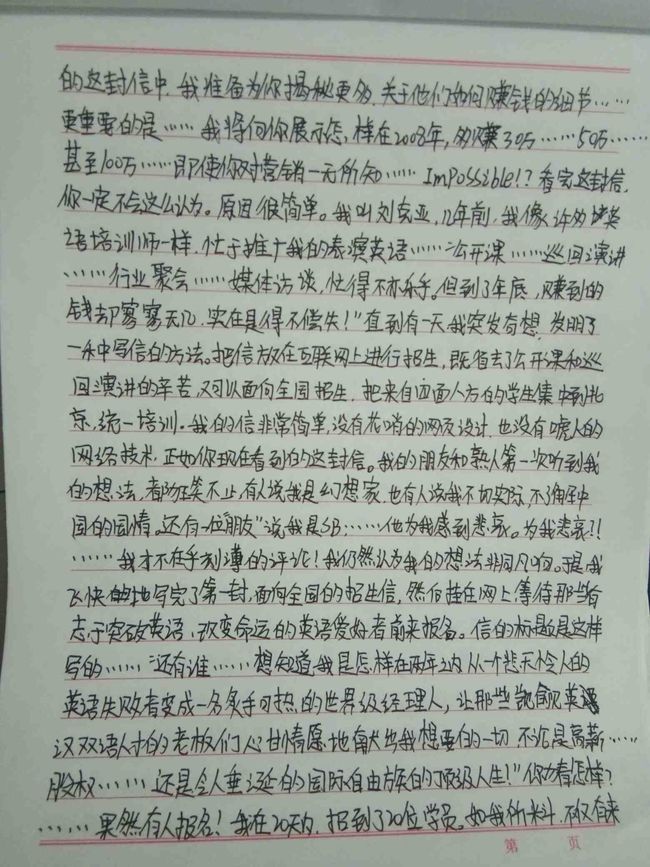 的这封信中，我准备为你揭秘更多，关于他们如何赚钱的细节……
更重要的是……我将向你展示怎样在2008年，多赚30万……50万……
甚至100万……即使你对营销一无所知……Impossible!? 看完这封信，
你一定不会这么认为。原因很简单。我叫刘克亚，几年前，我像许多英
语培训师一样，忙于推广我的表演英语……公开课……巡回演讲
……行业聚会……媒体访谈，忙得不亦乐乎。但到了年底，赚到的
钱却寥寥无几，实在是得不偿失！"直到有一天我突发奇想，发明了
一种写信的方法。把信放在互联网上进行招生，既省去了公开课和巡
回演讲的辛苦，又可以面向全国招生，把来自四面八方的学生集中到北
京，统一培训。我的信非常简单，没有花哨的网页设计，也没有唬人的
网络技术，正如你现在看到的这封信。我的朋友和熟人第一次听到我
的想法，都狂笑不止，有人说我是幻想家，也有人说我不切实际，不了解中
国的国情。还有一位"朋友"说我是SB……他为我感到悲哀。为我悲哀?!
……我才不在乎刻薄的评论！我仍然认为我的想法非同凡响。于是我
飞快地写完了第一封，面向全国的招生信，然后挂在网上，等待那些有
志于突破英语，改变命运的英语爱好者前来报名。信的标题是这样
写的……"还有谁……想知道，我是怎样在两年之内从一个悲天怜人的
英语失败者变成一名炙手可热的世界级经理人，让那些觊觎英
汉双语人才的老板们心甘情愿地献出我想要的一切，不论是高薪……
股权……还是令人垂涎的国际自由族的顶级人生！"你猜怎样？
……果然有人报名！我在20天内，招到了20位学员。如我所料，不仅有来
第 页